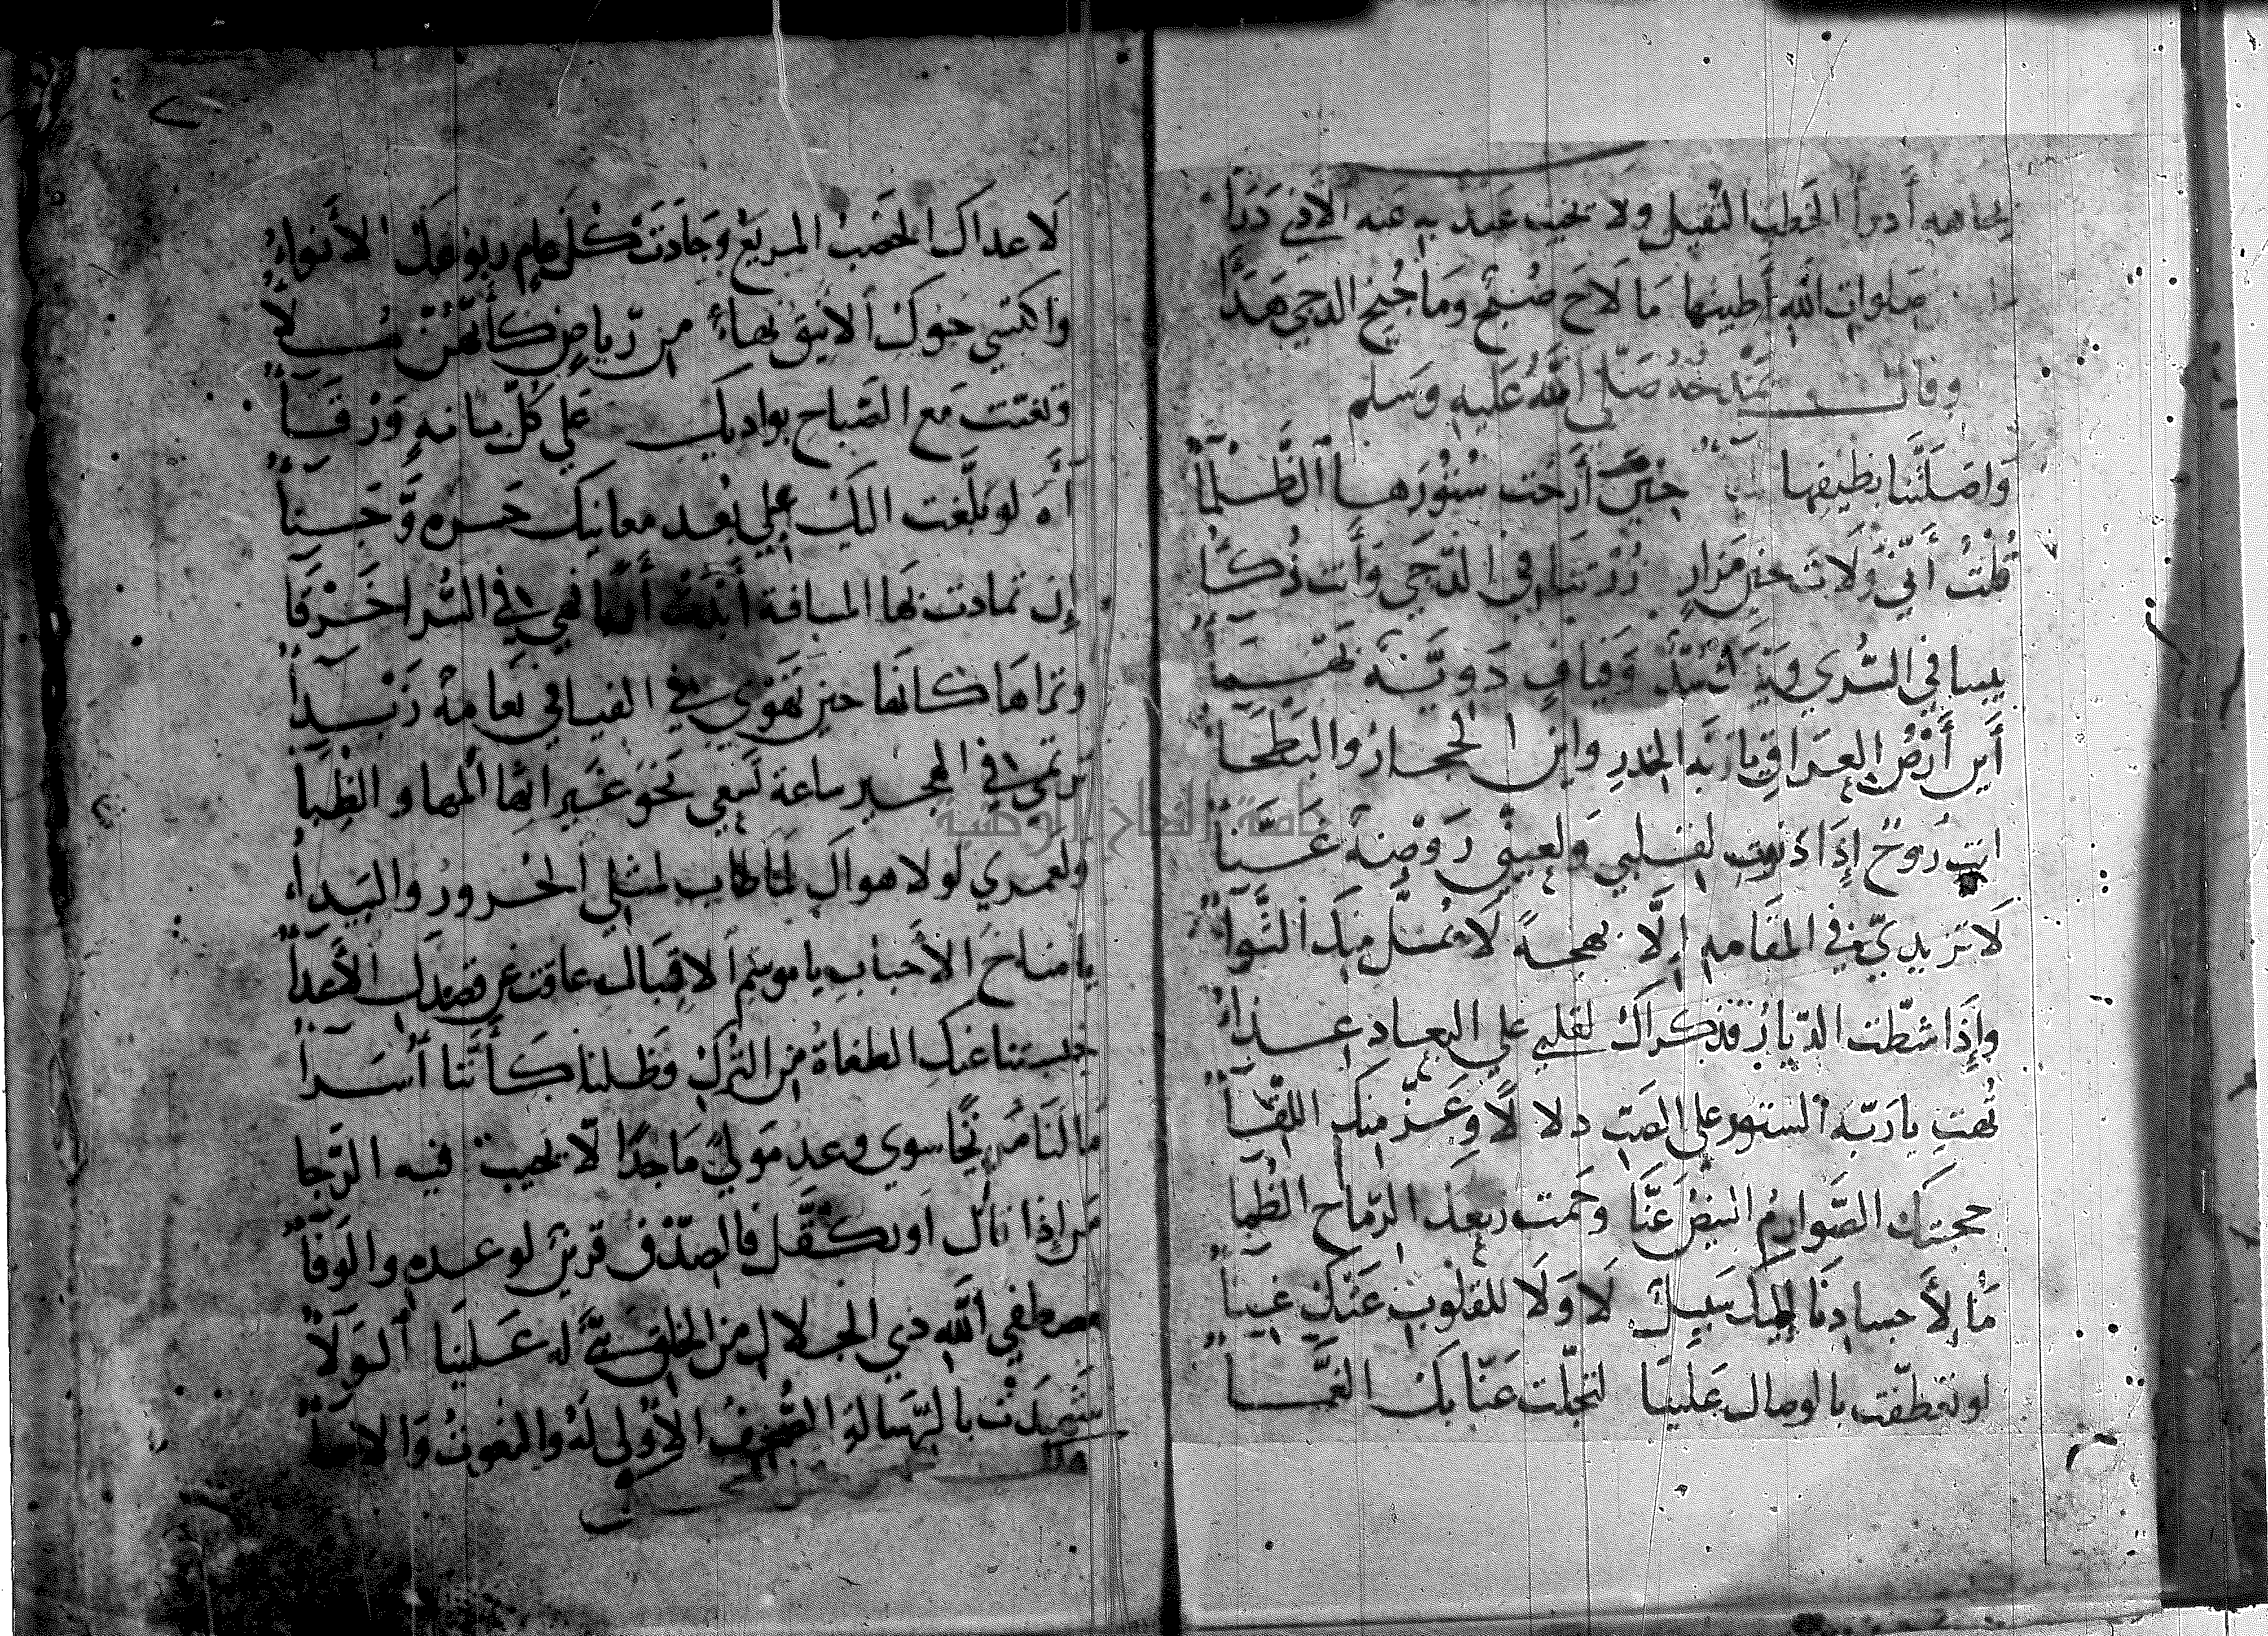 بجاهه أدرأ الخطب الثقيل ولا يخيب عبد به عنه الأذى دَرَأَ
صلوات الله أطيبها ما لاح صُبْحٌ وما جُنح الدجى هَدَأَ
وقال يمدحه صَلَّى اللهُ عَلَيهِ وَسَلم
وَاصَلَتْنا بطيفها حينَ أَرْخَت سُتُورَهَا الظلمآءُ
قُلْتُ أَنّى وَلَاتَ حين مَزارٍ زُرْتنَا في الدّجَى وَأنت ذُكآءُ
بيننا في السُّرى فَيَافٍ دَوِيَّة تَيْمَآءُ
أَين أَرْضُ العِرَاقِ يَا رَبّةَ الخدرِ واين الحجازُ والبَطحَآءُ
انتِ رُوحٌ إِذَا دَنوتِ لقلبي وَلعيني رَوْضة غنّآءُ
لَا تزيديّ في المقامِ إلَّا بهجةً لَا يُمَلُّ مِنكَ الثَّوآءُ
وَإِذَا شطّت الدّيارُ فذكراكَ لقلبي على البعادِ غذآءُ
تُهتِ يا رَبّة الستور على الصّبّ دلالًا وَعَزّ منكِ اللقآءُ
حجبتكِ الصّوارمُ البيضُ عَنّا وحَمت ربعَك الرّماح الظمآءُ
مَا لأَجسادِنَا إليك سَبيلٌ لَا وَلَا للقلوبِ عَنكِ غنآءُ
لو تعطّفتِ بالوصال عَلينَا لتجلّت عَنّا بكِ الغمّآءُ
لَا عداكَ الخصْبُ المريعُ وجَادَتْ كُلَّ عامٍ ربوعَك الأنوآءُ
واكتسي جوكِ الأنيق بهآءً من رّياضٍ كأنّهنّ مُلآءُ
وتغنّت مَع الصّباح بواديكِ على كُلِّ بانةٍ وَرْقآءُ
آه لو بلّغت اليكِ على بُعد معانيك جَسْرة وَجنآءُ
إن تمادت بها المسافة أبْدتْ أنّها في السُّرى خَرْقآءُ
وتراها كأنها حين تهوي في الفيافي نعامةٌ رَبْدآءُ
ترتمي في الهجير ساعة تسعى نحوَ غيرانها المها والظبآءُ
ولَعمري لولا هواكِ لما طابَ لمثلي الحرور والبيدآءُ
يا مناخَ الأَحبابِ يا موسِمَ الاقبال عاقت عن قصدك الأَعدآءُ
حبستنا عنكِ الطغاة من التُّركِ فَظلنا كأَنّنا أُسَرآءُ
مَا لنَا مُرتَجًا سوى وعدِ مَولىً مَاجدًا لَّا يخيبُ فيه الرَّجآءُ
مَن إذا قال أو تكفّل فالصّدق قرينٌ لوعده والوَفآءُ
مصطفى الله ذي الجلال من الخلق له عَلينَا الوَلآءُ
شَهِدَتْ بالرّسالةِ الصُّحفُ الأُولى لَهُ والنعوتُ وَالاسمآءُ